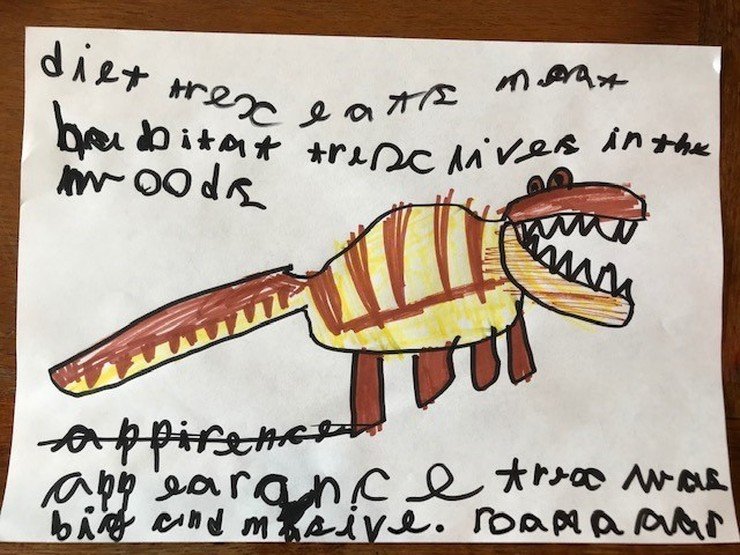 diet trex eats meat
habitat trex lives in the
woods
appirence
appearance trex was
big and masive. roaaaaaar